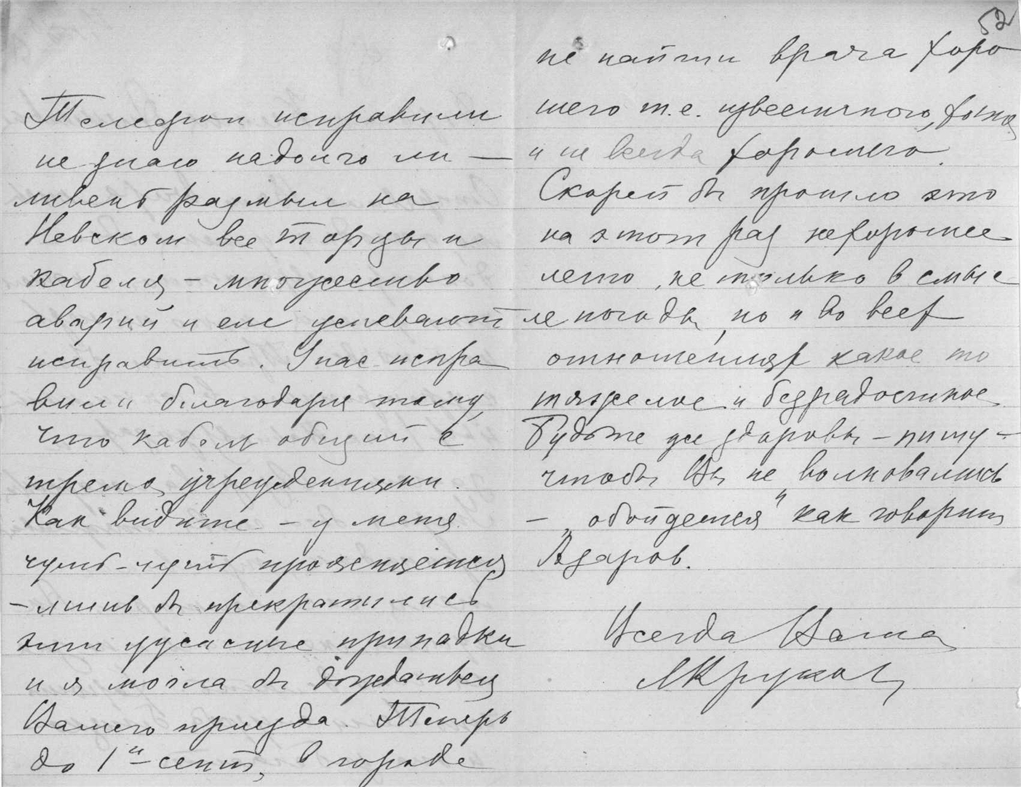 Телефон исправили
не знаю надолго ли —
ливень размыл на
Невском все торцы и
кабеля – множество
аварий и еле успевают
исправить. У нас испра
вили благодаря тому,
что кабель общий с
тремя учреждениями.
Как видите – у меня
чуть-чуть проясняется
– лишь бы прекратились
эти ужасные припадки
и я могла бы дождаться
Вашего приезда. Теперь
до 1го сент, в городе
52
не найти врача хоро
шего т.е. известного,
и не всегда хорошего.
Скорей бы прошло это
на этот раз нехорошее
лето, не только в смыс
ле погоды, но и во всех
отношениях какое то
тяжелое и безрадостное
Будьте же здоровы – пишу –
чтобы Вы не волновались
– „обойдется" как говорит
Азаров.
Всегда Ваша